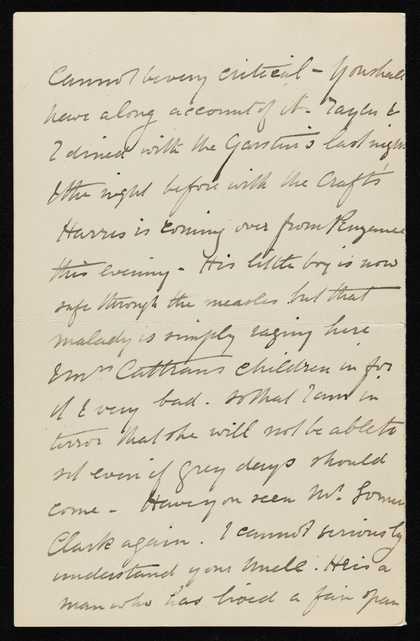 Cannot be very critical - You shall
have a long account of it - Tayler &
I dined with the Garstin's last night
& the night before with the Crafts
Harris is coming over from
this evening - His little boy is now
safe through the measles but that
malady is simply raging here
& Mrs Cattrans children in for
it & very bad. So that I am in
terror that she will not be able to
sit even if grey days should
come - Have you seen Mr.
Clark again. I cannot seriously
understand your Uncle. He is a
man who has lived a fair span